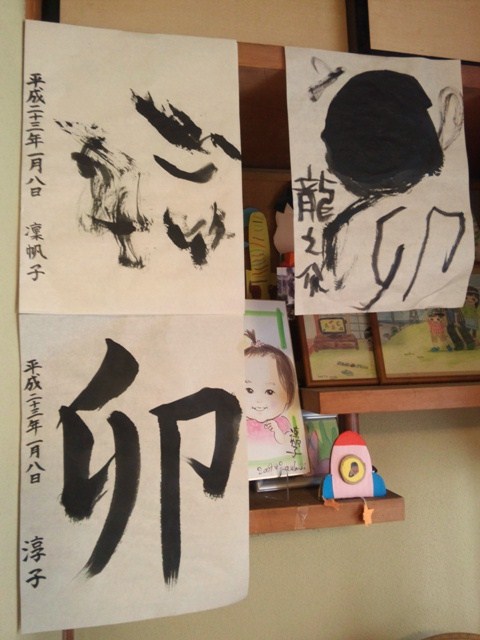 平成二十三年一月八日
凜帆子
龍之介
卯
卯
平成二十三年一月八日
淳子
凜帆子